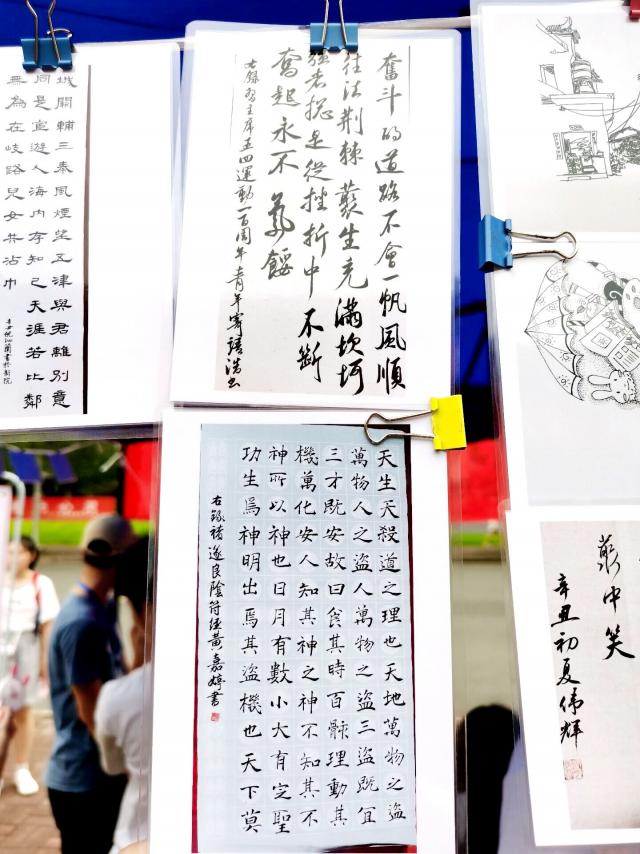 城闕輔三秦風煙望五津與君離別意
同是宦遊人海内存知己天涯若比鄰
無為在岐路兒女共沾巾
奮斗的道路不會一帆風順
往往荆棘叢生充滿坎坷
強者總是從挫折中不斷
奮起永不氣餒
右錄習主席五四運動一百周年青年寄語浩書
天生天殺道之理也天地萬物之盜
萬物人之盜人萬物之盜三盜既宜
三才既安故曰食其時百骸理動其
機萬化安人知其神之神不知其不
神所以神也日月有數小大有定聖
功生焉神明出焉其盜機也天下莫
右錄褚遂良陰符經黃嘉婷書
叢中笑
辛丑初夏偉輝